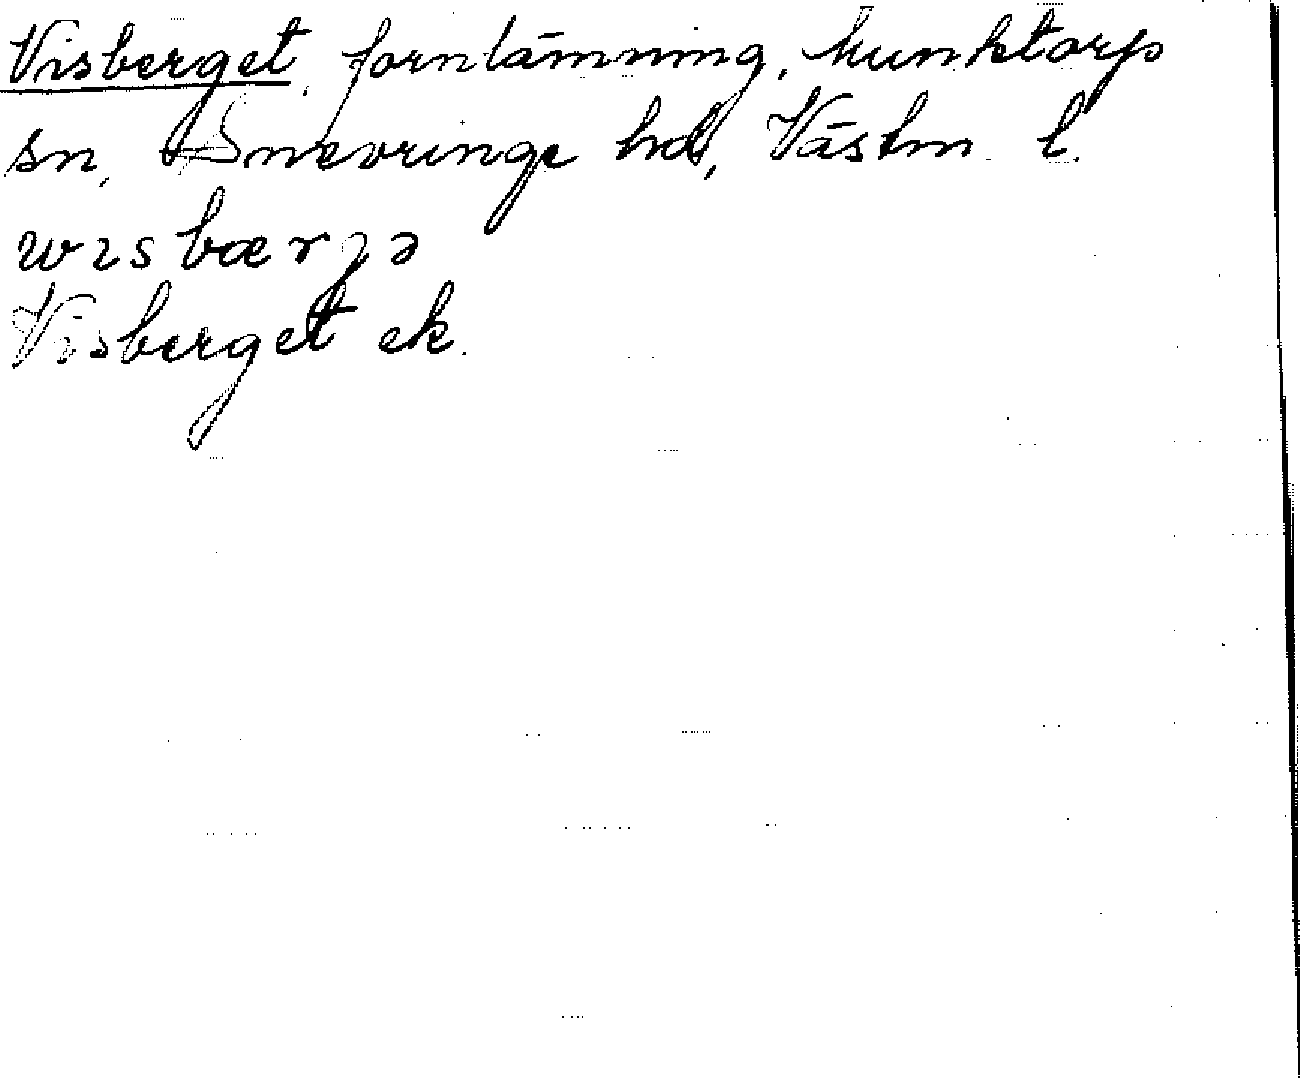 Visberget, fornlämning, Munktorps
sn, Snevringe hd, Västm l.
visbærjə
Visberget ek.